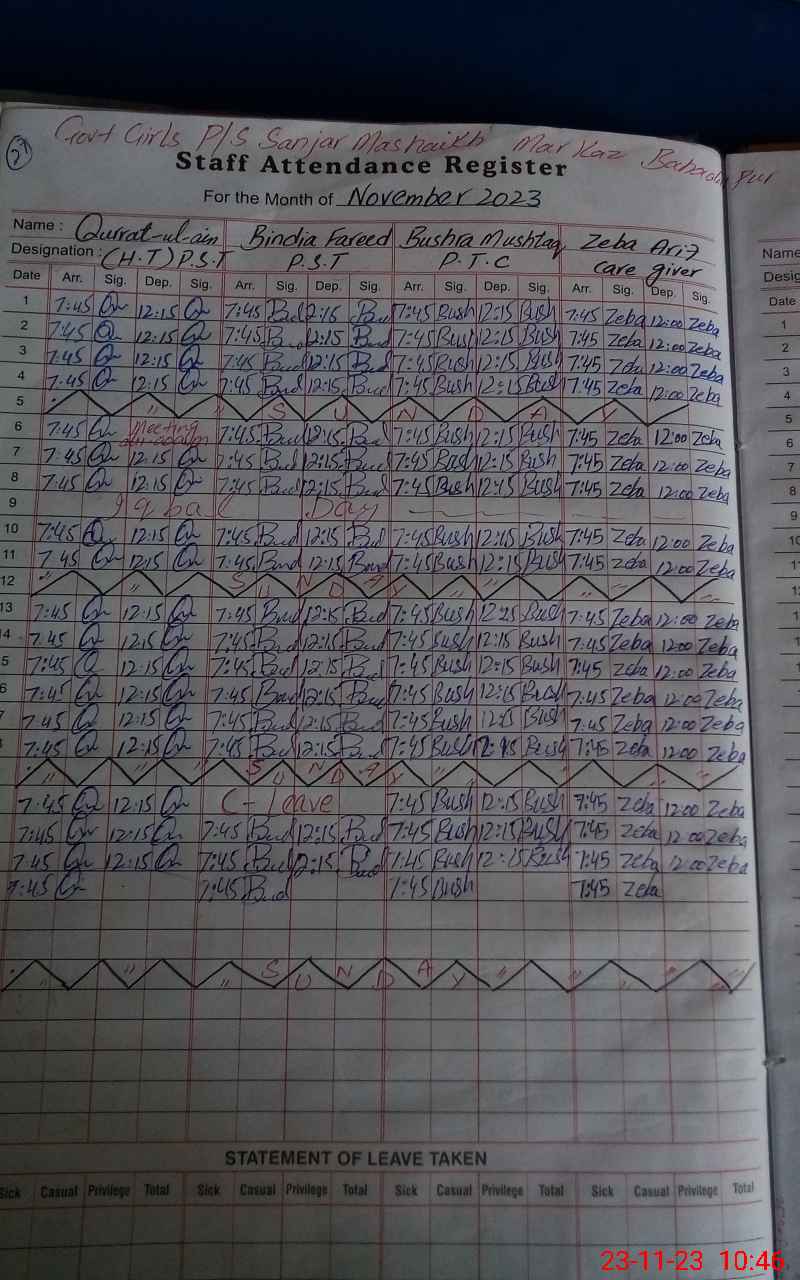 27
Govt Girls P/S Sanjar Mashaikh Markaz Bahadur pur
Staff Attendance Register
For the Month of November 2023
Name : Qurrat-ul-ain Bindia Fareed Bushra Mushtaq Zeba Arif
Designation : (H.T) P.S.T P.S.T P.T.C care giver
Date Arr. Sig. Dep. Sig. Arr. Sig. Dep. Sig. Arr. Sig. Dep. Sig. Arr. Sig. Dep. Sig.
1 7:45 12:15 7:45 12:15 7:45 Bush 12:15 Bush 7:45 Zeba 12:00 Zeba
2 7:45 12:15 7:45 12:15 7:45 Bush 12:15 Bush 7:45 Zeba 12:00 Zeba
3 7:45 12:15 7:45 12:15 7:45 Bush 12:15 Bush 7:45 Zeba 12:00 Zeba
4 7:45 12:15 7:45 12:15 7:45 Bush 12:15 Bush 7:45 Zeba 12:00 Zeba
5 " S U N D A Y
6 7:45 Meeting 7:45 12:15 7:45 Bush 12:15 Bush 7:45 Zeba 12:00 Zeba
7 7:45 12:15 7:45 12:15 7:45 Bush 12:15 Bush 7:45 Zeba 12:00 Zeba
8 7:45 12:15 7:45 12:15 7:45 Bush 12:15 Bush 7:45 Zeba 12:00 Zeba
9 Iqbal Day
10 7:45 12:15 7:45 12:15 7:45 Bush 12:15 Bush 7:45 Zeba 12:00 Zeba
11 7:45 12:15 7:45 12:15 7:45 Bush 12:15 Bush 7:45 Zeba 12:00 Zeba
12 " " S U N D A Y " " " "
13 7:45 12:15 7:45 12:15 7:45 Bush 12:15 Bush 7:45 Zeba 12:00 Zeba
14 7:45 12:15 7:45 12:15 7:45 Bush 12:15 Bush 7:45 Zeba 12:00 Zeba
5 7:45 12:15 7:45 12:15 7:45 Bush 12:15 Bush 7:45 Zeba 12:00 Zeba
6 7:45 12:15 7:45 12:15 7:45 Bush 12:15 Bush 7:45 Zeba 12:00 Zeba
7:45 12:15 7:45 12:15 7:45 Bush 12:15 Bush 7:45 Zeba 12:00 Zeba
7:45 12:15 7:45 12:15 7:45 Bush 12:15 Bush 7:45 Zeba 12:00 Zeba
" " " S U N D A Y " " " "
7:45 12:15 C-Leave 7:45 Bush 12:15 Bush 7:45 Zeba 12:00 Zeba
7:45 12:15 7:45 12:15 7:45 Bush 12:15 Bush 7:45 Zeba 12:00 Zeba
7:45 12:15 7:45 12:15 7:45 Bush 12:15 Bush 7:45 Zeba 12:00 Zeba
7:45 7:45 7:45 Bush 7:45 Zeba
" " " S U N D A Y " " " "
STATEMENT OF LEAVE TAKEN
Sick Casual Privilege Total Sick Casual Privilege Total Sick Casual Privilege Total Sick Casual Privilege Total
Name
Desig
Date
1
2
3
4
5
6
7
8
9
10
11
23-11-23 10:46